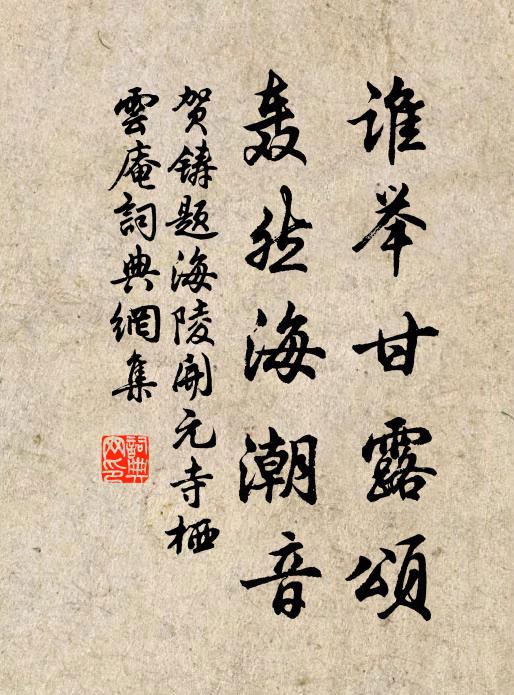 谁举甘露颂
轰然海潮音
贺铸题海陵开元寺栖
雲庵詞典網集
詞典网印